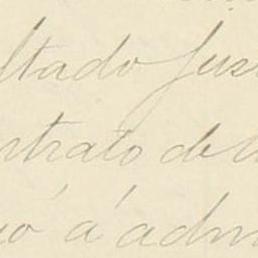 ltado jus
ntrato de
ó á adm